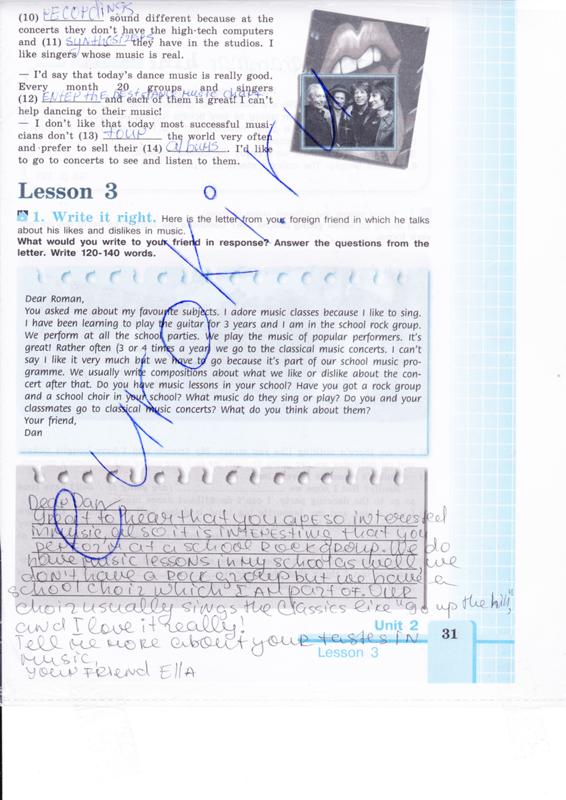 (10) recordings sound different because at the
concerts they don't have the high-tech computers
and (11) synthesizers they have in the studios. I
like singers whose music is real.
— I'd say that today's dance music is really good.
Every month 20 groups and singers
(12) enter the best dance music chart and each of them is great! I can't
help dancing to their music!
— I don't like that today most successful musi-
cians don't (13) tour the world very often
and prefer to sell their (14) albums. I'd like
to go to concerts to see and listen to them.
Lesson 3
1. Write it right. Here is the letter from your foreign friend in which he talks
about his likes and dislikes in music.
What would you write to your friend in response? Answer the questions from the
letter. Write 120-140 words.
Dear Roman,
You asked me about my favourite subjects. I adore music classes because I like to sing.
I have been learning to play the guitar for 3 years and I am in the school rock group.
We perform at all the school parties. We play the music of popular performers. It's
great! Rather often (3 or 4 times a year) we go to the classical music concerts. I can't
say I like it very much but we have to go because it's part of our school music pro-
gramme. We usually write compositions about what we like or dislike about the con-
cert after that. Do you have music lessons in your school? Have you got a rock group
and a school choir in your school? What music do they sing or play? Do you and your
classmates go to classical music concerts? What do you think about them?
Your friend,
Dan
Dear Dan
Great to hear that you are so interested
in music, also it is interesting that you
perform at a school rock group. We do
have music lessons in my school as well, we
don't have a rock group but we have a
school choir which I am part of. Our
choir usually sings the classics like "go up the hill,"
and I love it really!
Tell me more about your tastes in
music,
your friend Ella
Unit 2
Lesson 3
31